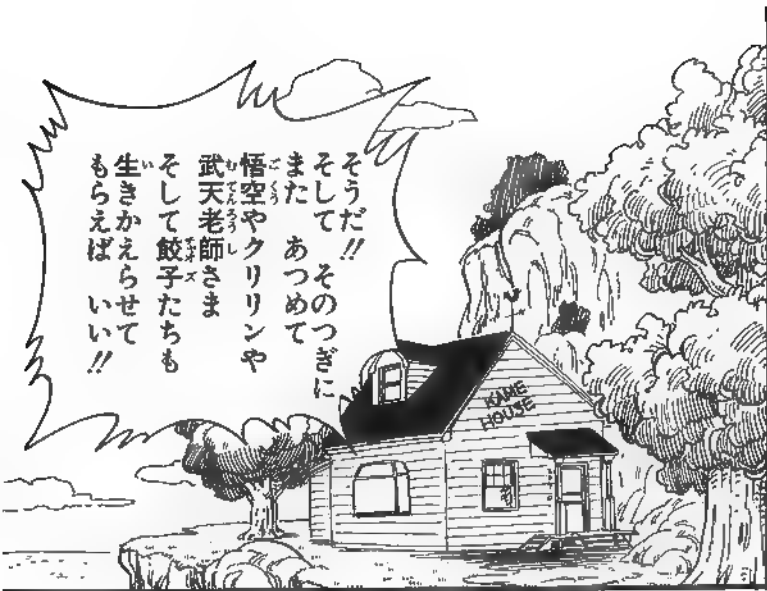 そうだ!!
そして そのつぎに
また あつめて
悟空やクリリンや
武天老師さま
そして餃子たちも
生きかえらせて
もらえば いい!!
KAME
HOUSE